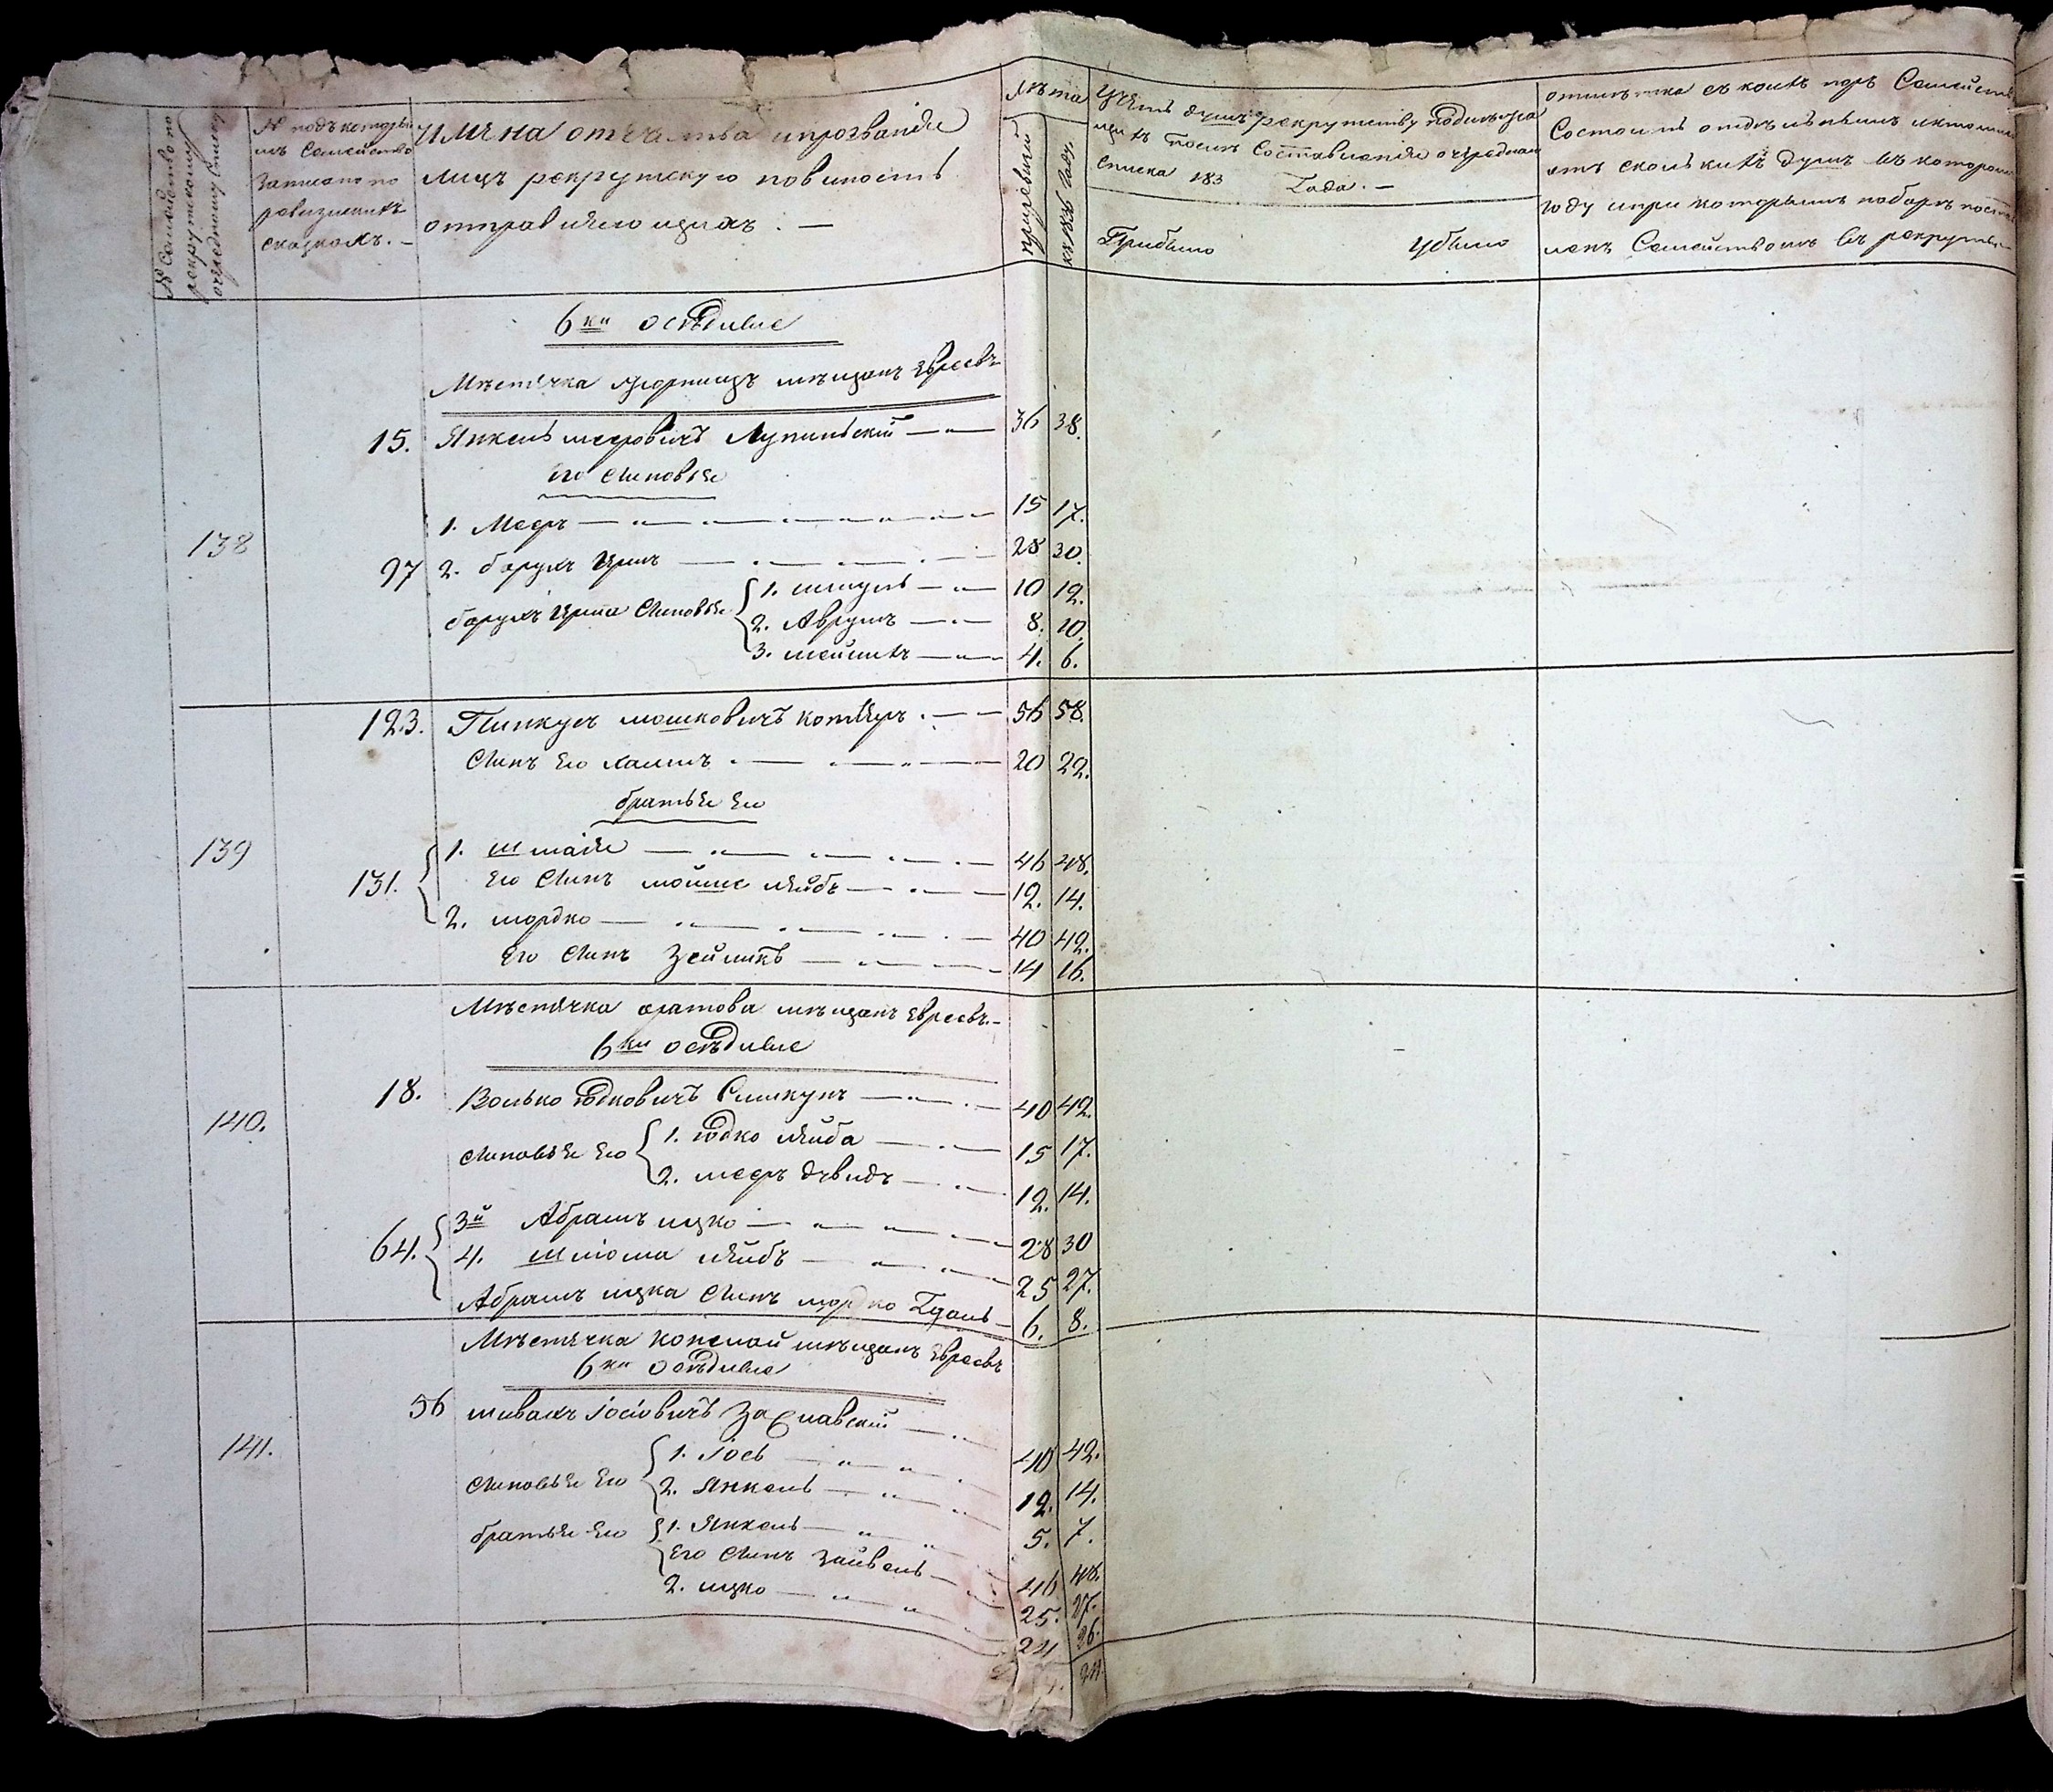 № Семейства по
рекрутскому
очередному списку
№ подъ которы
мъ Семейство
записано по
ревизскимъ
сказкамъ. —
Имена отечества ипрозваніе
лицъ рекрутскую повиность
отправляющихъ. —
Лѣта
къ 1836 году.
Учетъ душъ рекрутству подлежа
щихъ после Составленія очередном
списка 183 Года. —
Прибыло Убыло
отметка съ коихъ поръ Семейств
Состоитъ отделънымъ
изъ сколькихъ душъ въ котором
году ипри которымъ наборе постав
ленъ Семействомъ въ рекруты. —
6 ки оседлые
Мѣстечка мещанъ Евреевъ
138
15. Янкель меэровичъ Лупинский 36 38.
Его Сыновья
1. Меэръ 15 17.
97 2. борухъ Иршъ 28 30.
борухъ Ирша Сыновья
1. шмуль 10 12.
2. Аврумъ 8. 10.
3. 4. 6.
139
123. Пинкусъ мошковичъ 56 58.
Сынъ Его хаимъ 20 22.
братья Его
131.
1. шмаія 46 48.
Его Сынъ мойше лейбъ 12. 14.
2. мордко 40 42.
Его Сынъ Зейликъ 14 16.
Мѣстечка оратова мещанъ Евреевъ. —
6 ки оседлые
140.
18. Волько юдковичъ 40 42.
Сыновья Его
1. юдко лейба 15 17.
2. меэръ давидъ 12. 14.
64.
3й Абрамъ ицко 28 30
4. шліома лейбъ 25 27.
Абрамъ ицка Сынъ мордко 6. 8.
Мѣстечка мещанъ Евреевъ
6 ки оседлые
141.
56 Іосіовичъ Заславский 40 42.
Сыновья Его
1. Іось 12. 14.
2. Янкель 5. 7.
братья Его
1. Янкель 46 48.
Его Сынъ Зайвель 25. 27.
2. ицко 24 26.
24